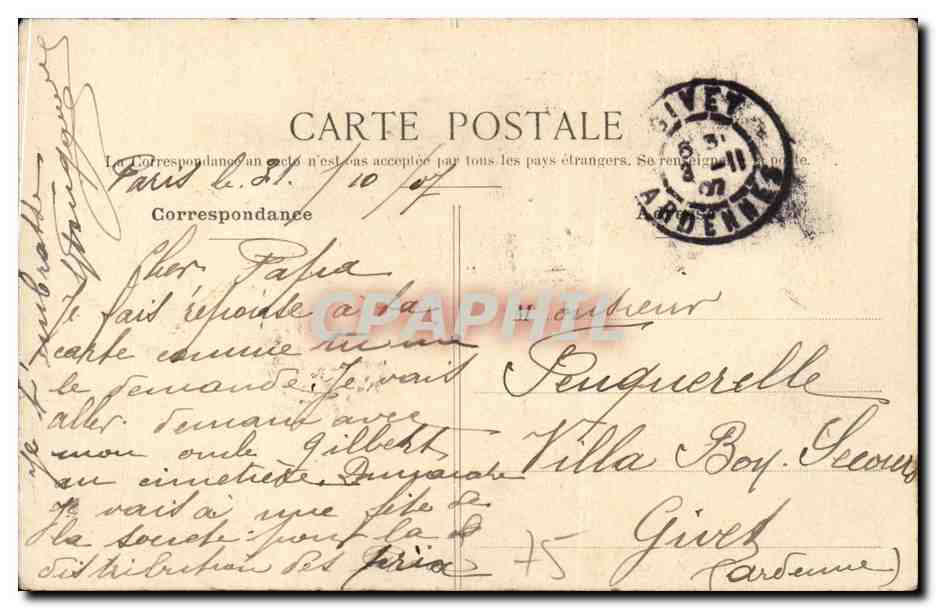 CARTE POSTALE
La Correspondance au recto n'est pas acceptée par tous les pays étrangers. Se renseigner à la poste.
Paris le 31/10/07
Correspondance
Cher Papa
Je fais réponse a ta
carte comme
le demande. Je vais
aller demain avec
mon oncle Gilbert
au cimetière. Dimanche
Je vais à une fête de
la societe pour la
distribution des Prix
Je t'embrasse
Adresse
Monsieur
Penquerelle
Villa Boy. Secours
Givet
(Ardenne)
75
GIVET
ARDENNES
CPAPHIL